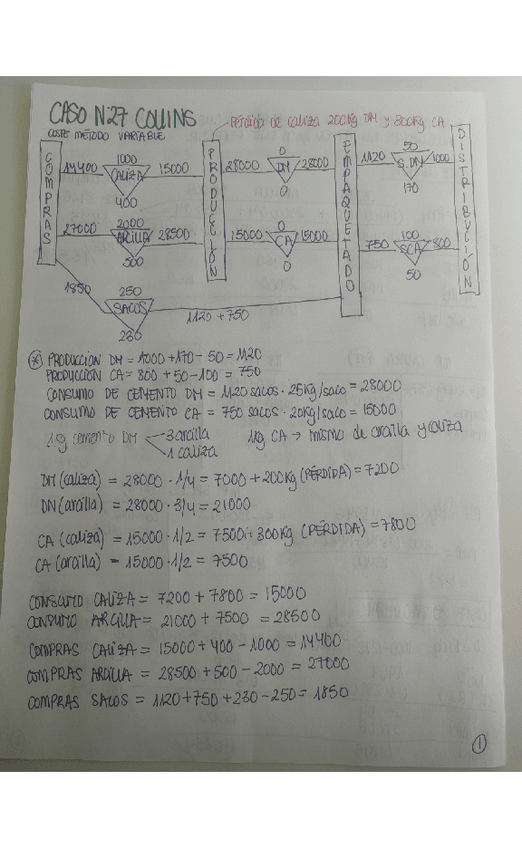 CASO Nº27 COLLINS
Pérdida de caliza 200kg DM y 300kg CA
COSTE MÉTODO VARIABLE
COMPRAS
PRODUCCIÓN
EMPAQUETADO
DISTRIBUCIÓN
14400 1000 CALIZA 400 15000
28000 0 DM 0 28000
1120 50 S.DM 170 1000
27000 2000 ARCILLA 500 28500
15000 0 CA 0 15000
750 100 SCA 50 800
1850 250 SACOS 230 1120 + 750
* PRODUCCIÓN DM = 1000 + 170 - 50 = 1120
PRODUCCIÓN CA = 800 + 50 - 100 = 750
CONSUMO DE CEMENTO DM = 1120 sacos · 25kg/saco = 28000
CONSUMO DE CEMENTO CA = 750 sacos · 20kg/saco = 15000
1kg cemento DM 3 arcilla 1kg CA → mismo de arcilla y caliza
1 caliza
DM (caliza) = 28000 · 1/4 = 7000 + 200kg (PÉRDIDA) = 7200
DM (arcilla) = 28000 · 3/4 = 21000
CA (caliza) = 15000 · 1/2 = 7500 + 300kg (PÉRDIDA) = 7800
CA (arcilla) = 15000 · 1/2 = 7500
CONSUMO CALIZA = 7200 + 7800 = 15000
CONSUMO ARCILLA = 21000 + 7500 = 28500
COMPRAS CALIZA = 15000 + 400 - 1000 = 14400
COMPRAS ARCILLA = 28500 + 500 - 2000 = 27000
COMPRAS SACOS = 1120 + 750 + 230 - 250 = 1850
1